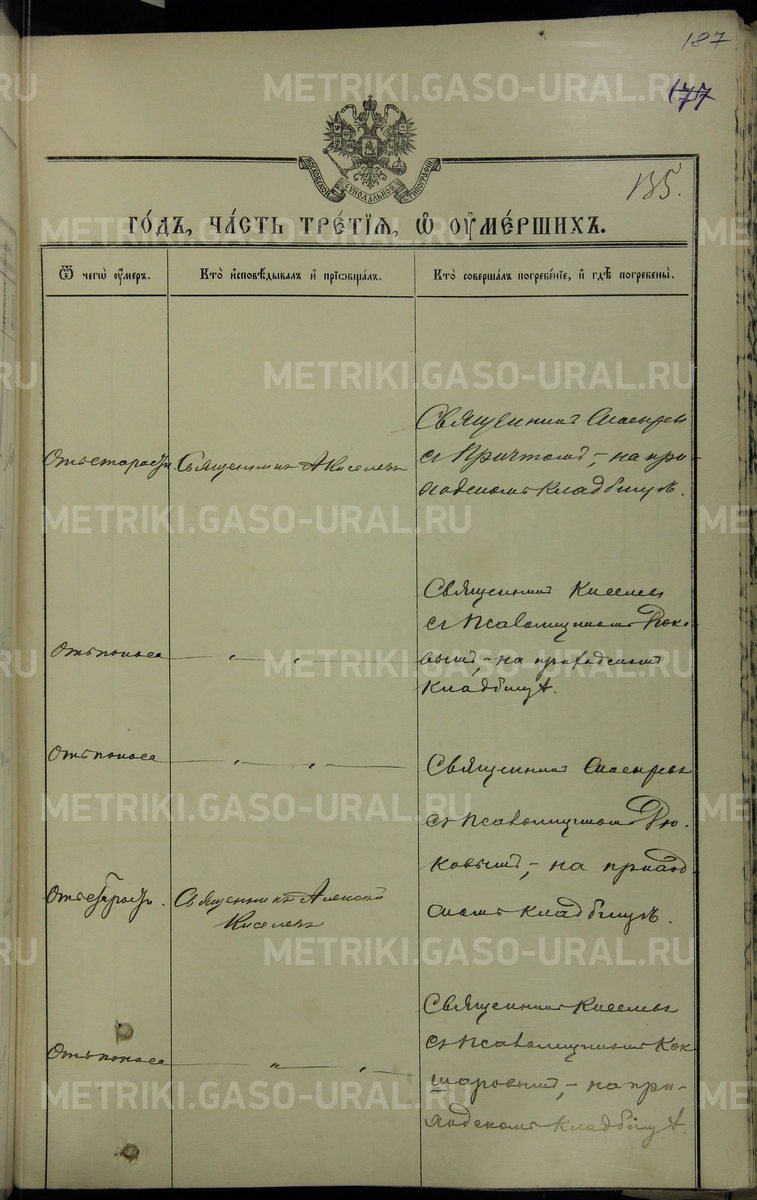 187
177
135.
МОСКОВСКОЙ СУНОДАЛЬНОЙ ТИПОГРАФІИ
ГО́ДЪ, ЧА́СТЬ ТРЕ́ТІѦ, Ѡ ОУ҆МЕ́РШИХЪ.
Ѿ чегѡ̀ оу҆́меръ.
Кто̀ и҆сповѣ́дывалъ и҆ прїѡбща́лъ.
Кто̀ соверша́лъ погребе́нїе, и҆ гдѣ̀ погребены̀.
Отъ старости
Священникъ А Киселевъ
Священникъ
съ Причтомъ, – на при-
ходскомъ кладбищѣ.
Отъ поноса
— „ — „ —
Священникъ Киселевъ
съ Псаломщикомъ
вымъ, – на приходскомъ
кладбищѣ.
Отъ поноса
— „ — „ —
Священникъ
съ Псаломщикомъ Дю-
ковымъ, – на приход
скомъ кладбищѣ.
Отъ старости.
Священникъ Алексій
Киселевъ
Отъ поноса
— „ — „ —
Священникъ Киселевъ
съ Псаломщикомъ Кок
шаровымъ, – на при-
ходскомъ кладбищѣ.
METRIKI.GASO-URAL.RU